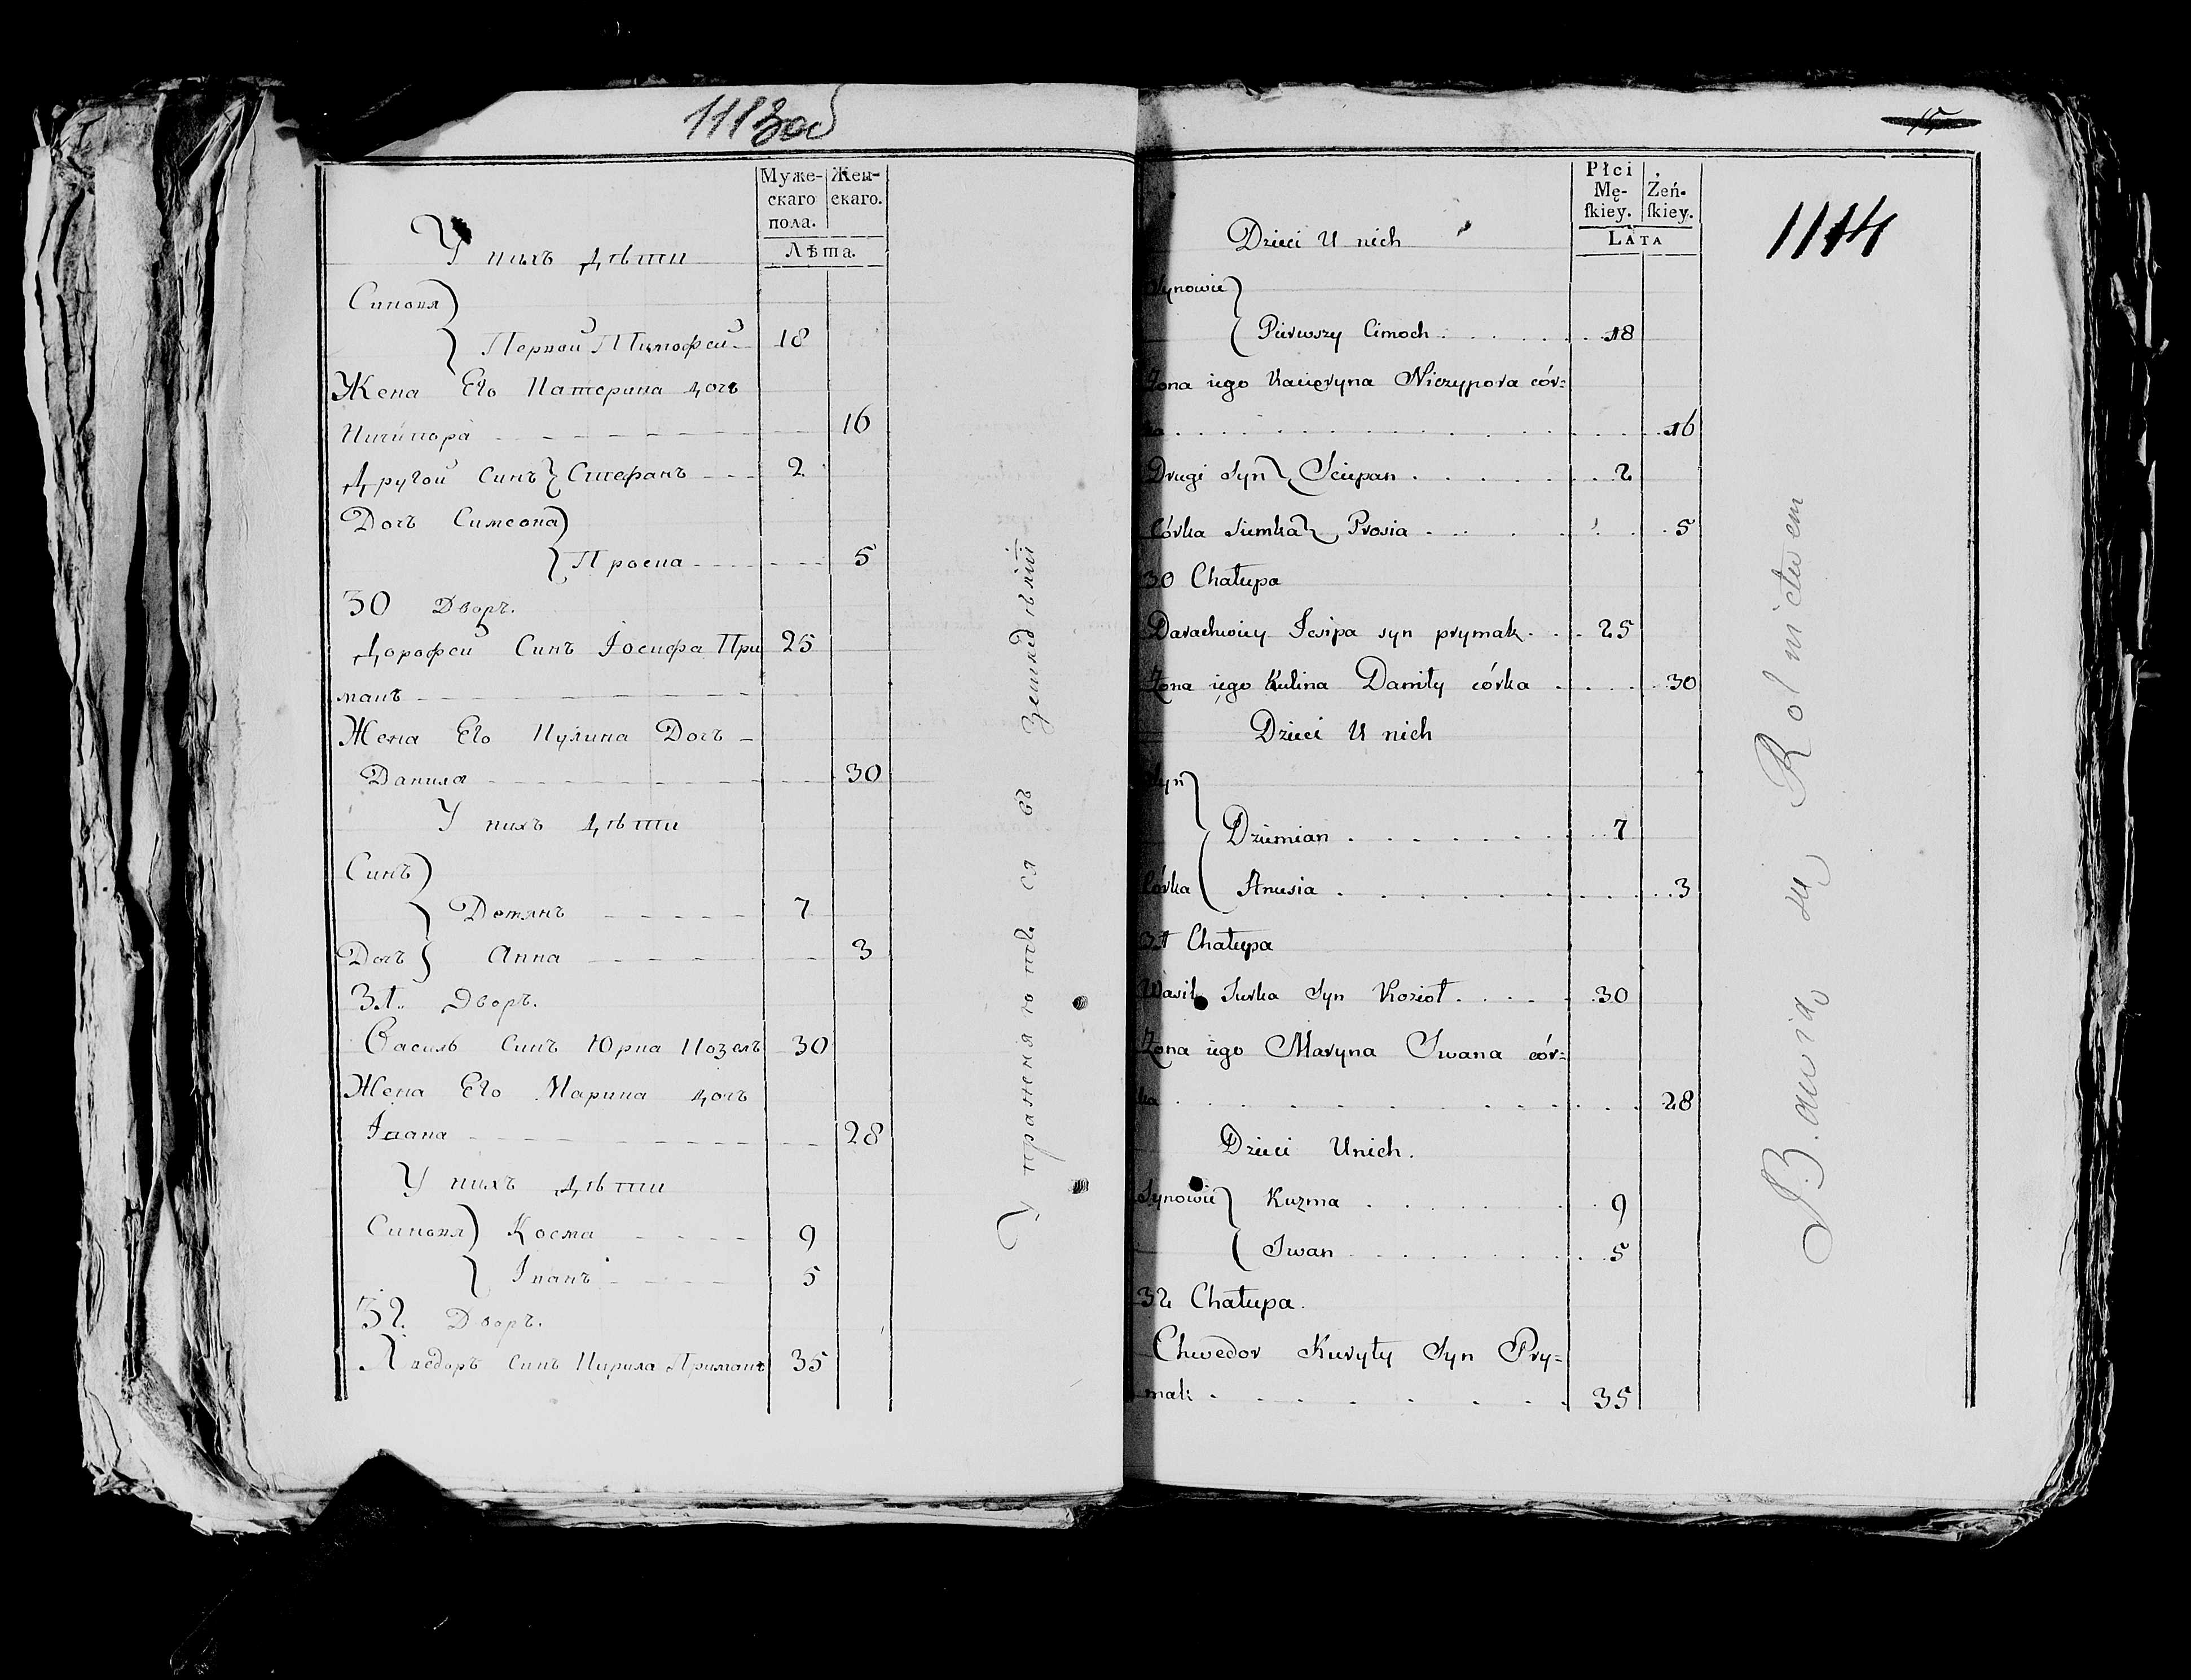 1113об
Муже-
скаго
пола.
Жен-
скаго.
Лѣта.
У нихъ дѣти
Синовя
Первой Тимофей
18
Жена Его Катерина дочь
Ничипора
16
Другой Синъ Стефанъ
2
Дочь Симеона
Просиа
5
30 Дворъ.
Дорофей Синъ Іосифа При
25
макъ
Жена Его Кулина Дочь
Данила
30
У нихъ дѣти
Синъ
Демянъ
7
Дочь Анна
3
31. Дворъ.
Василь Синъ Юрка Козелъ
30
Жена Его Марина дочь
Івана
28
У нихъ дѣти
Синовя Косма
9
Іванъ
5
32. Дворъ.
Хведоръ Синъ Кирила Примакъ
35
Упражняютъ ся въ Земледѣлій
15
1114
Płci
Mę-
ſkiey.
Żeń-
ſkiey.
LATA
Dzieci U nich
Synowie
Pierwszy Cimoch
18
Zona iego Kacieryna Niczypora cór=
ka
16
Drugi Syn Sciepan
2
Córka Siemka Prosia
5
30 Chałupa
Darachwiey Jesipa syn prymak
25
Zona iego Kulina Daniły córka
30
Dzieci U nich
Syn
Dziemian
7
Córka Anusia
3
31 Chałupa
Wasil Jurka Syn Kozioł
30
Zona iego Maryna Iwana cór=
ka
28
Dzieci Unich.
Synowie Kuzma
9
Iwan
5
32 Chałupa.
Chwedor Kuryły Syn Pry=
mak
35
Bawią się Rolnictwem